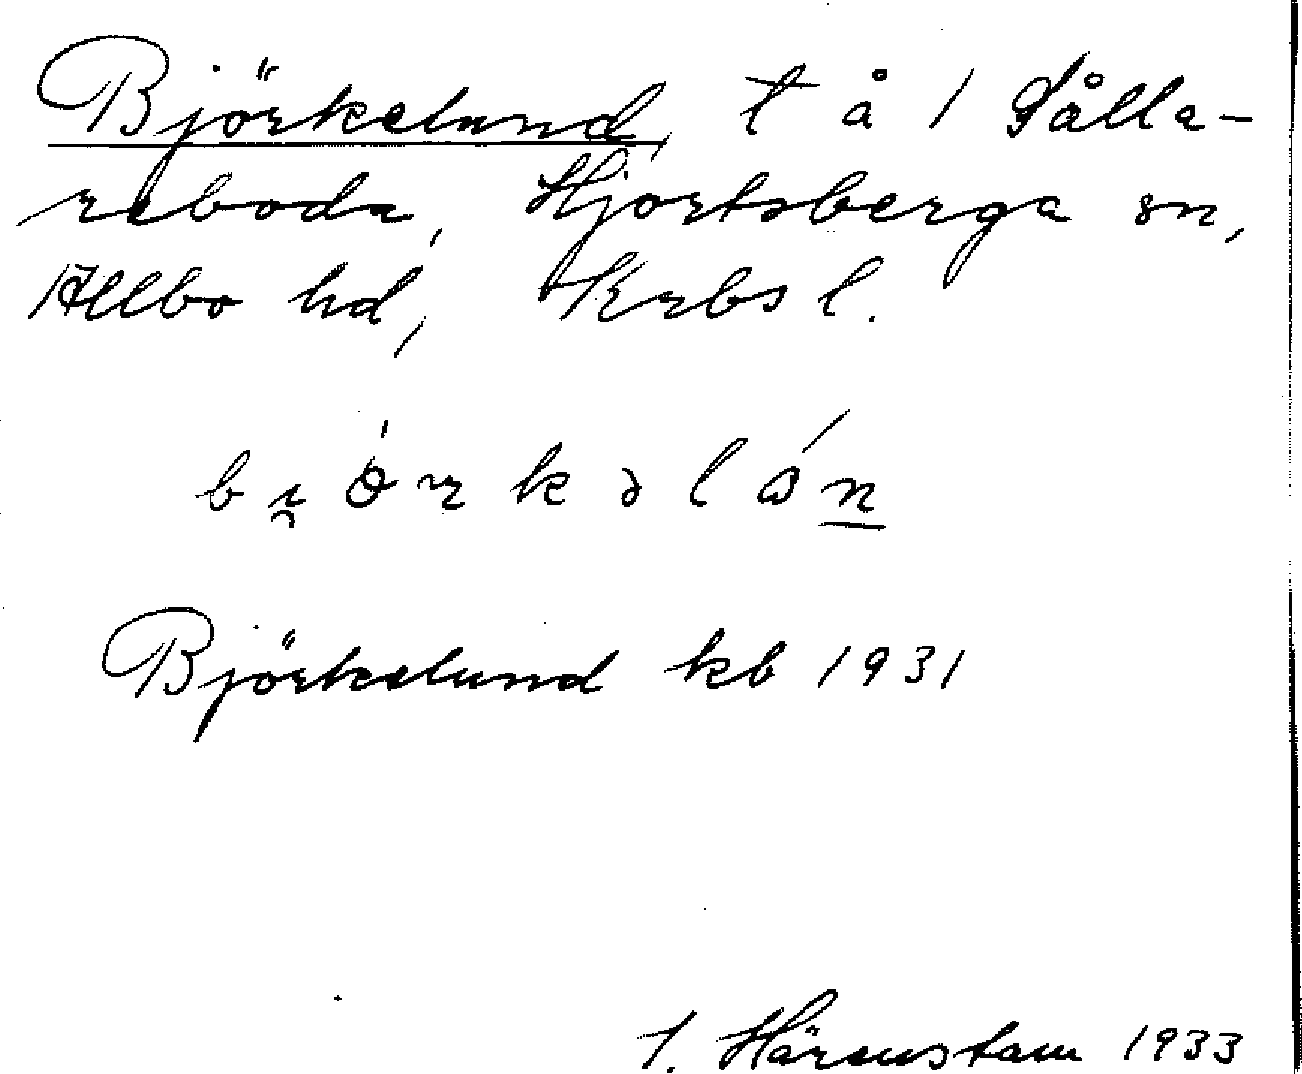 Björkelund, t å 1 Sålla-
reboda, Hjortsberga sn,
Allbo hd, Krbs l.
bi̯ǿrkəlón
Björkelund kb 1931
I. Härenstam 1933